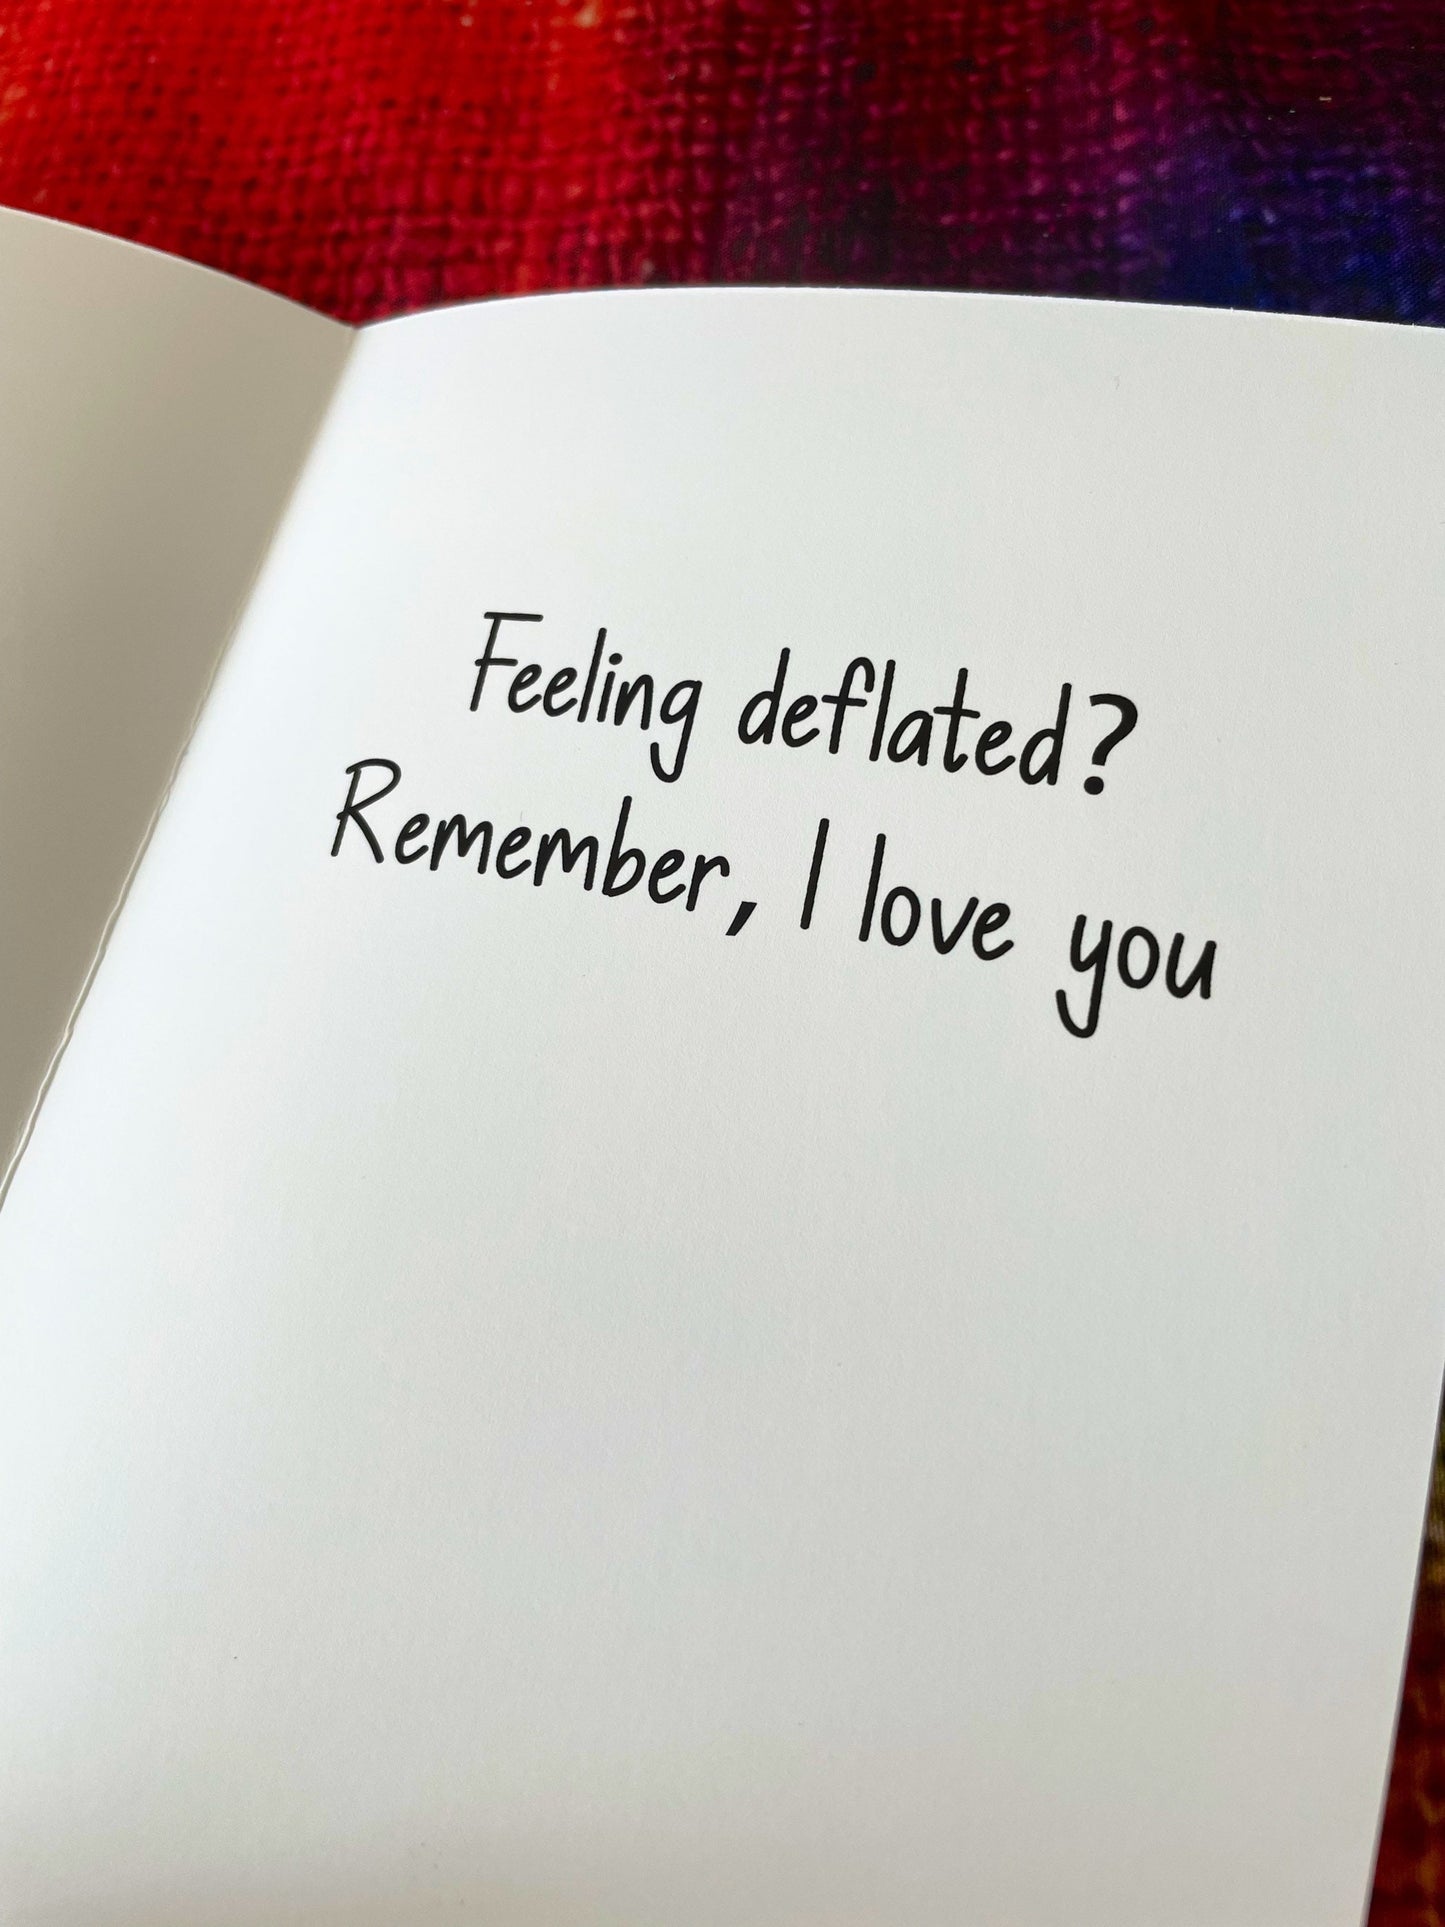 Feeling deflated?
Remember, I love you